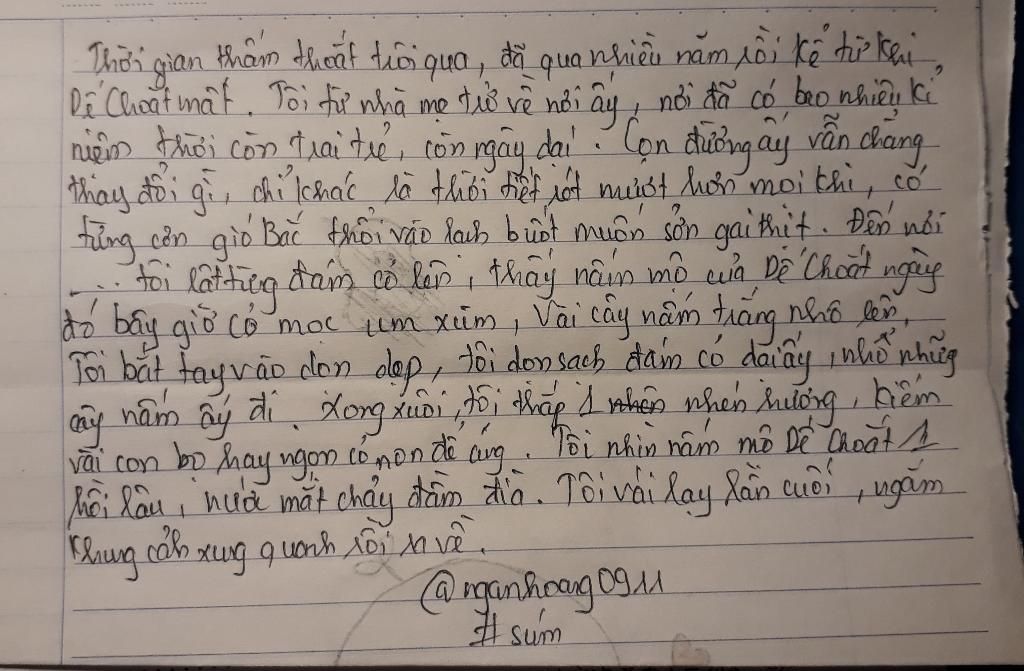 Thời gian thấm thoắt trôi qua, đã qua nhiều năm rồi kể từ khi
Dế Choắt mất. Tôi từ nhà mẹ trở về nơi ấy, nơi đã có bao nhiêu kỉ
niệm thời còn trai trẻ, còn ngây dại. Con đường ấy vẫn chẳng
thay đổi gì, chỉ khác là thời tiết rét mướt hơn mọi khi, có
từng cơn gió Bắc thổi vào lạnh buốt muốn sởn gai thịt. Đến nơi
.... tôi lật từng đám cỏ lên, thấy nấm mộ của Dế Choắt ngày
đó bây giờ cỏ mọc um xùm, vài cây nấm trắng nhô lên.
Tôi bắt tay vào dọn dẹp, tôi dọn sạch đám cỏ dại ấy, nhổ những
cây nấm ấy đi. Xong xuôi, tôi thắp 1 nhén hương, kiếm
vài con bọ hay ngọn cỏ non để cúng. Tôi nhìn nấm mộ Dế Choắt 1
hồi lâu, nước mắt chảy đầm đìa. Tôi vái lạy lần cuối, ngắm
khung cảnh xung quanh rồi ra về.
@nganhoang0911
#súm